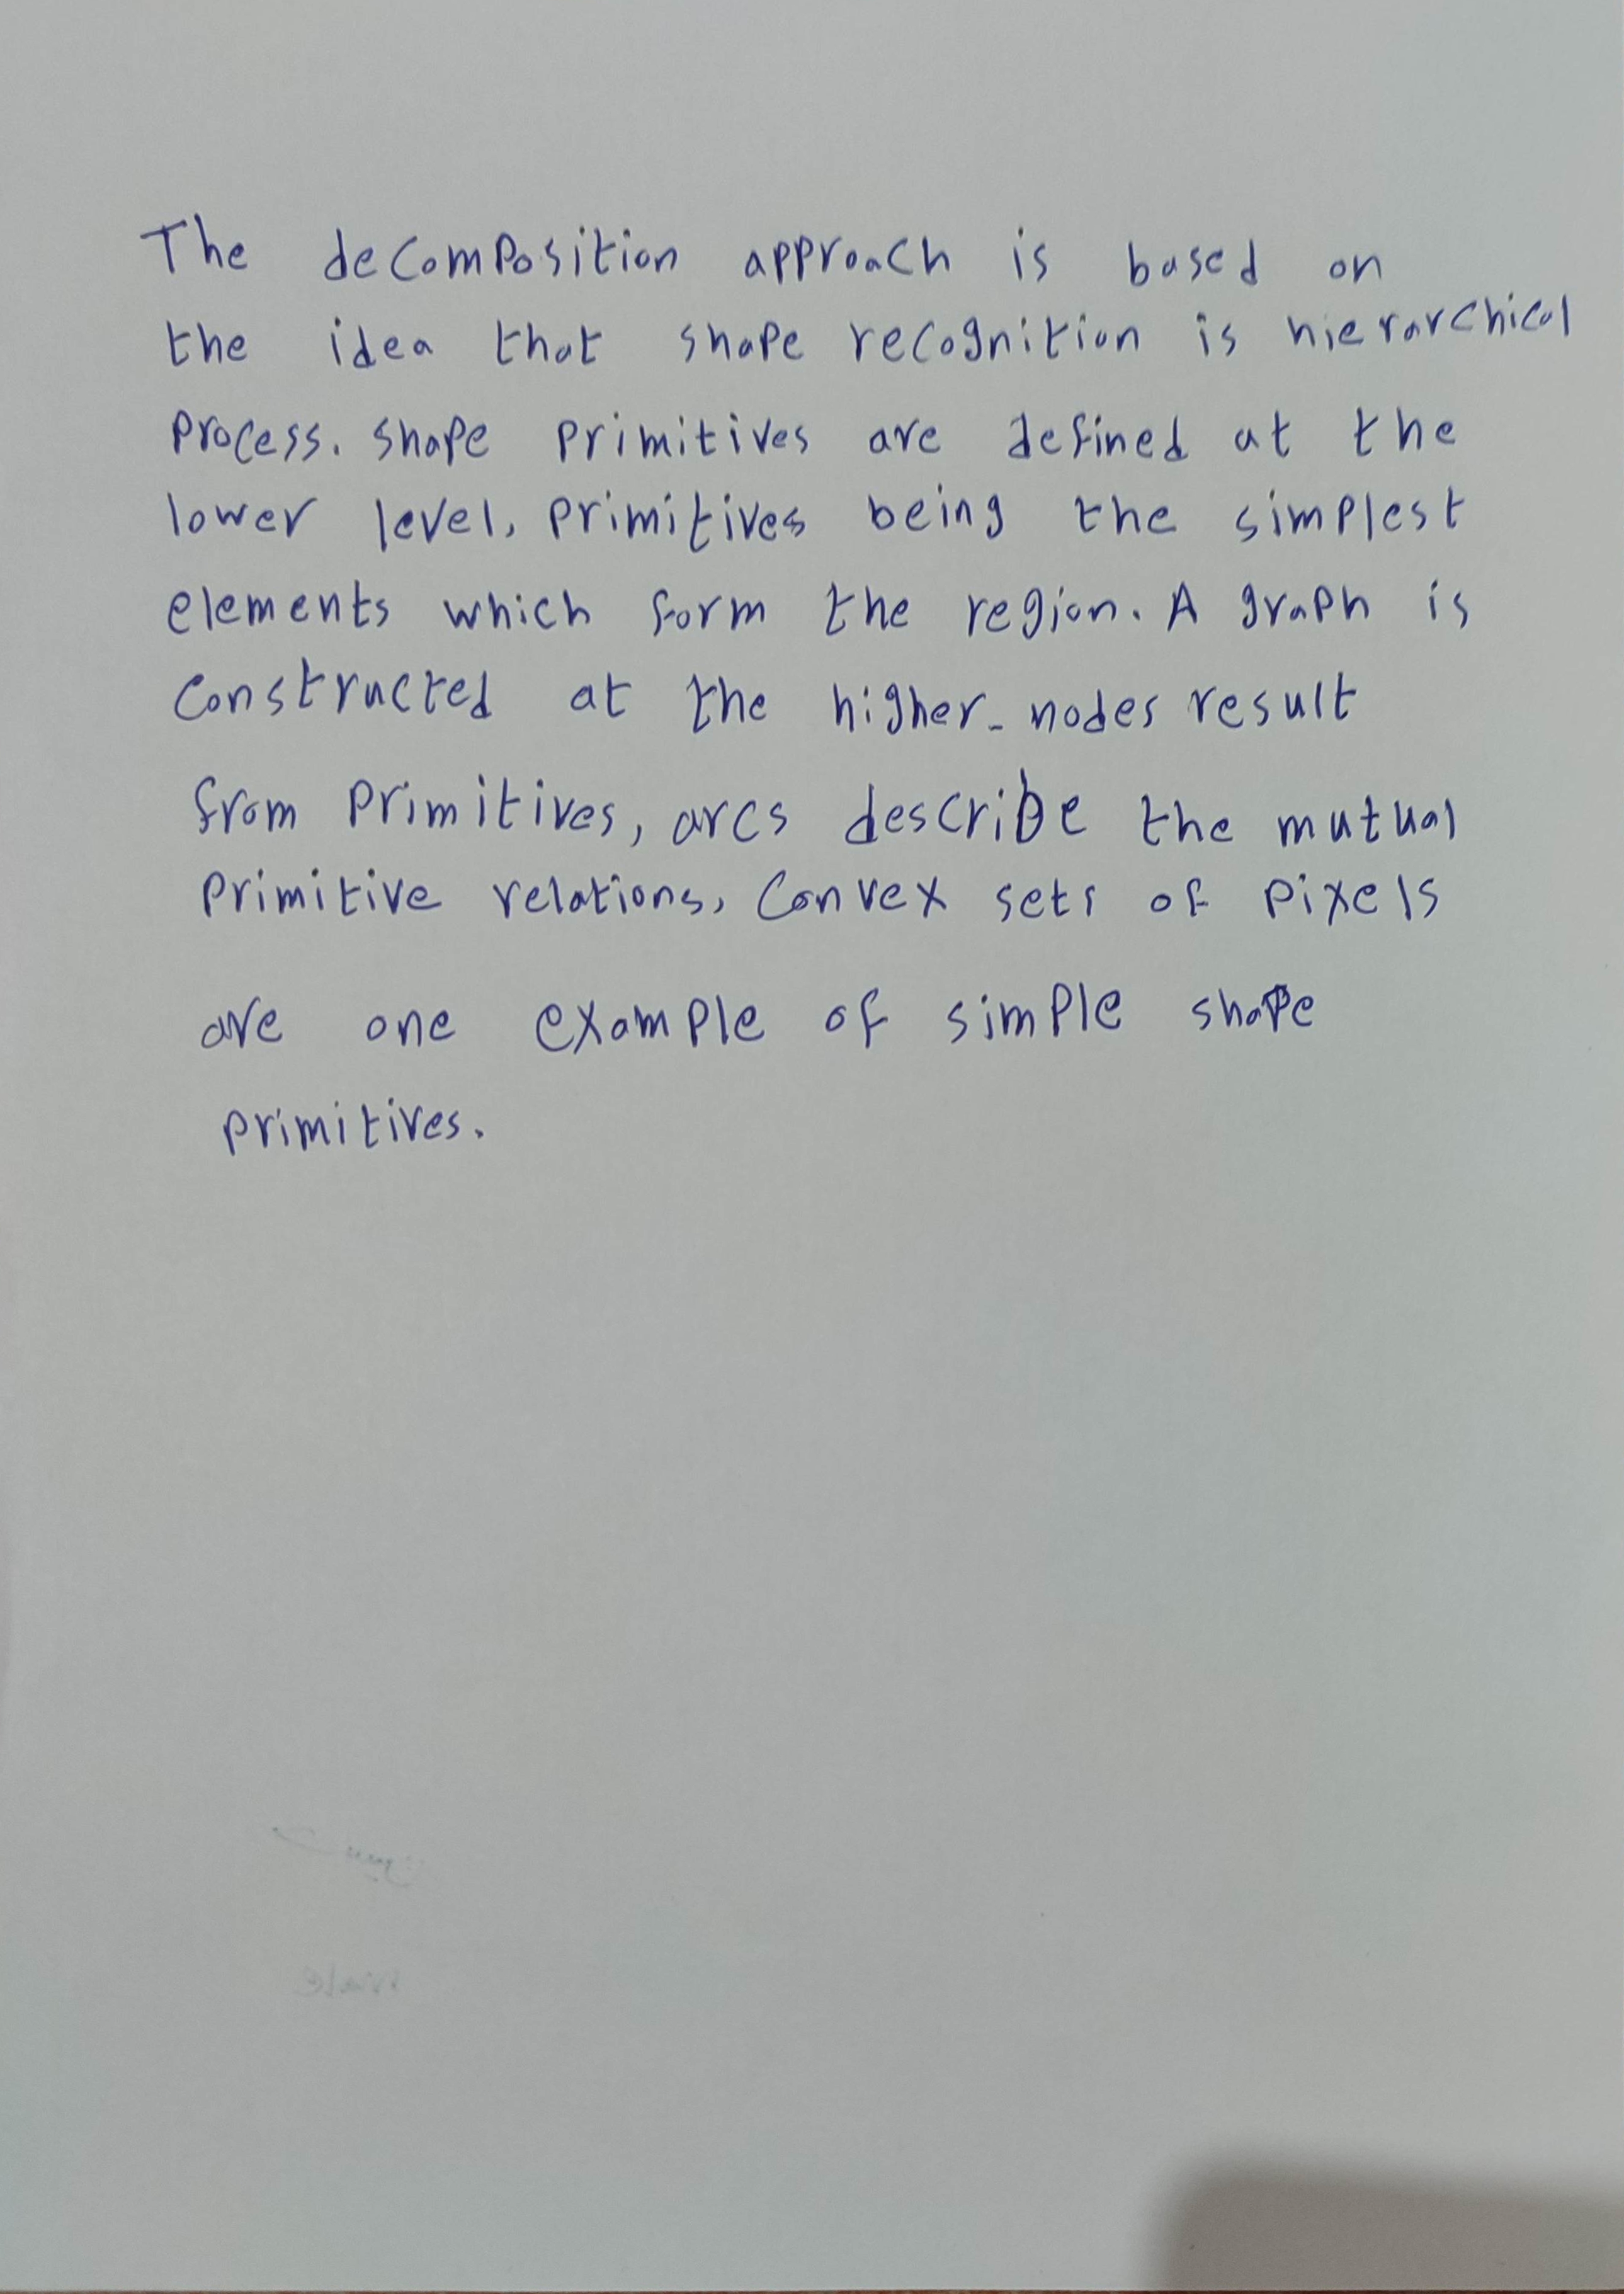 The decomposition approach is based on
the idea that shape recognition is hierarchical
process. shape primitives are defined at the
lower level, primitives being the simplest
elements which form the region. A graph is
constructed at the higher - nodes result
from primitives, arcs describe the mutual
primitive relations, Convex sets of pixels
are one example of simple shape
primitives.